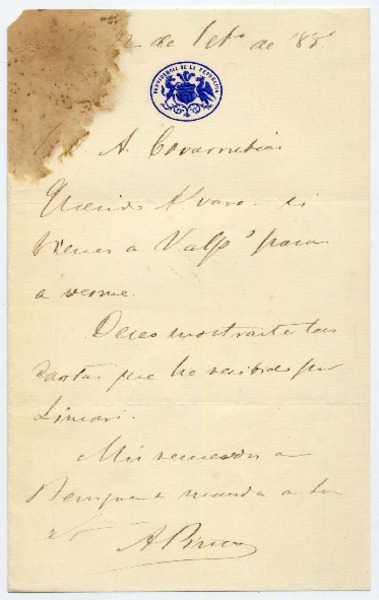 de Set.e de 88.
PRESIDENCIA DE LA REPUBLICA
A. Covarrubias
Querido Alvaro - si
vienes a Valpº pasa
a verme.
Deseo mostrarte las
cartas que he recibido por
Limarí.
Mis recuerdos a
manda a tu
A. Pinto